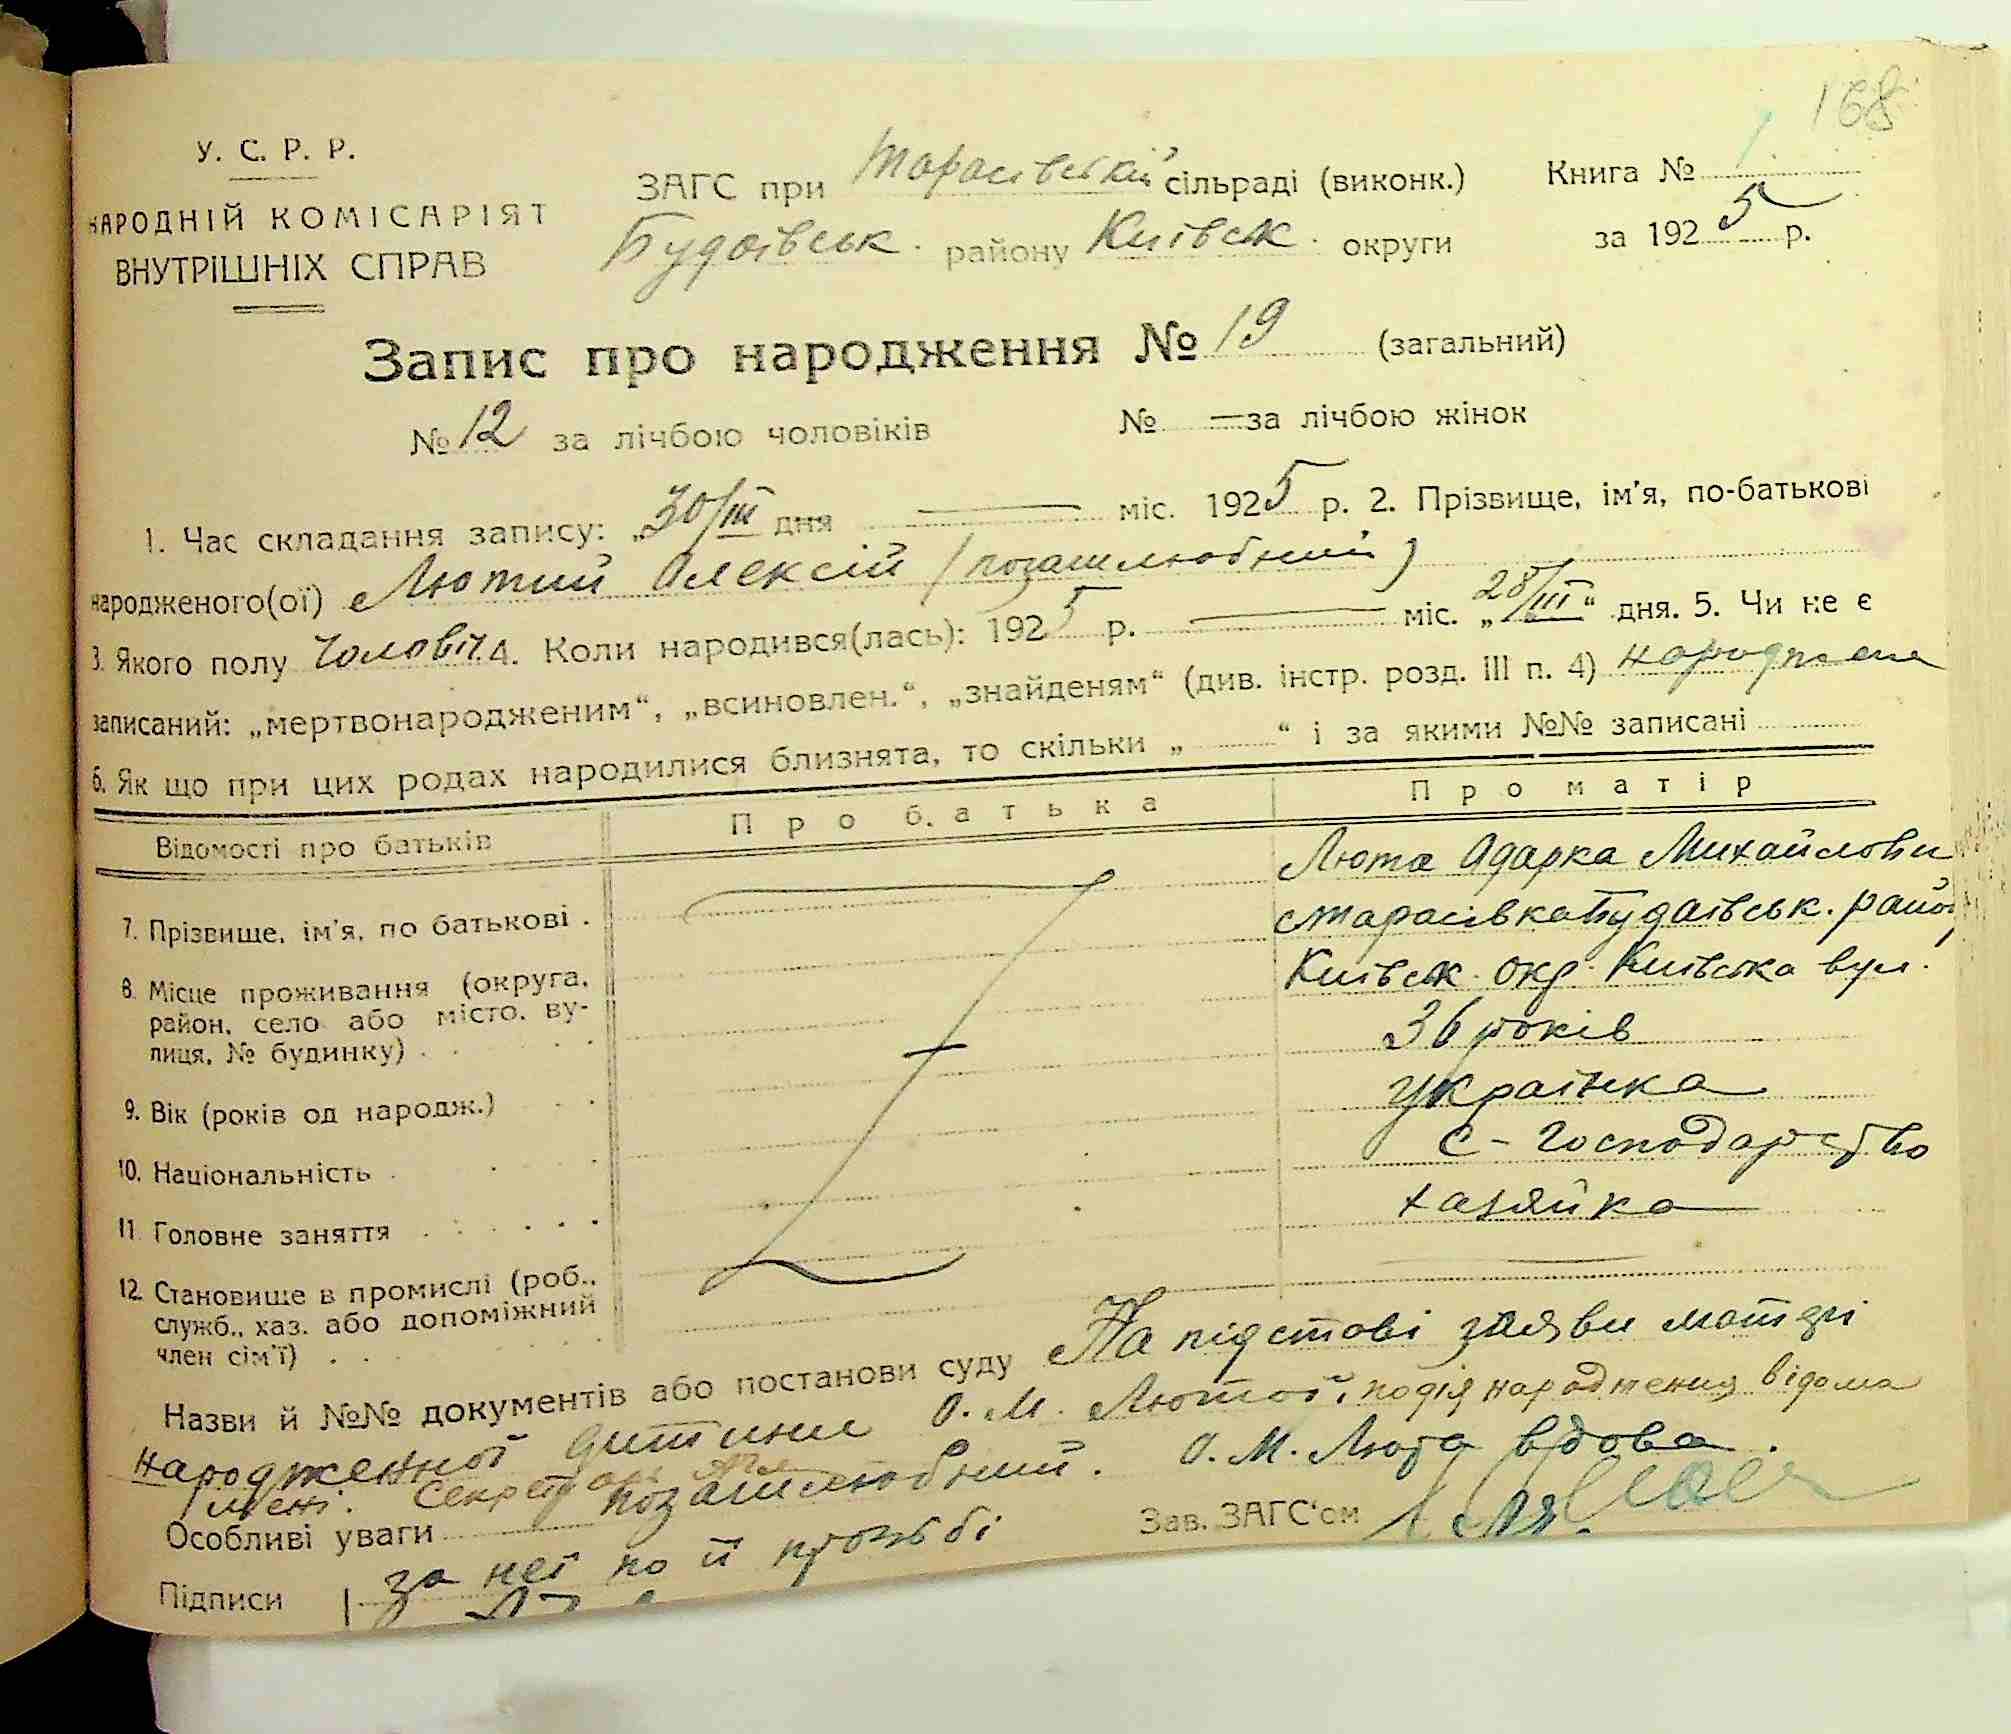 168
У. С. Р. Р.
НАРОДНІЙ КОМІСАРІЯТ
ВНУТРІШНІХ СПРАВ
ЗАГС при Тарасівській сільраді (виконк.) Книга № 1
Будаївськ. району Київськ. округи за 1925 р.
Запис про народження № 19 (загальний)
№ 12 за лічбою чоловіків № — за лічбою жінок
1. Час складання запису: „30/III дня — міс. 1925 р. 2. Прізвище, ім'я, по-батькові
народженого(ої) Лютий Олексій (позашлюбний)
3. Якого полу Чоловіч. 4. Коли народився(лась): 1925 р. — міс. „28/III“ дня. 5. Чи не є
записаний: „мертвонародженим“, „всиновлен.“, „знайденям“ (див. інстр. розд. III п. 4) народжена
6. Як що при цих родах народилися близнята, то скільки „ “ і за якими №№ записані
Відомості про батьків Про батька Про матір
7. Прізвище, ім'я, по батькові . Люта Одарка Михайловн
8. Місце проживання (округа, район, село або місто, вулиця, № будинку) . . . . с Тарасівка Будаївськ. район,
Київськ. окр. Київська вул.
9. Вік (років од народж.) . . 36 років
10. Національність . . . . українка
11. Головне заняття . . . . . . с-господарство
12. Становище в промислі (роб., служб., хаз. або допоміжний член сім'ї) . . . . хазяйка
Назви й №№ документів або постанови суду На підстові заяви матері
народженної дитини О. М. Лютої, подія народження відома
мені. Секретарь
Особливі уваги позашлюбний. О. М. Люта вдова.
Підписи за неї по її прозьбі Зав. ЗАГС'ом